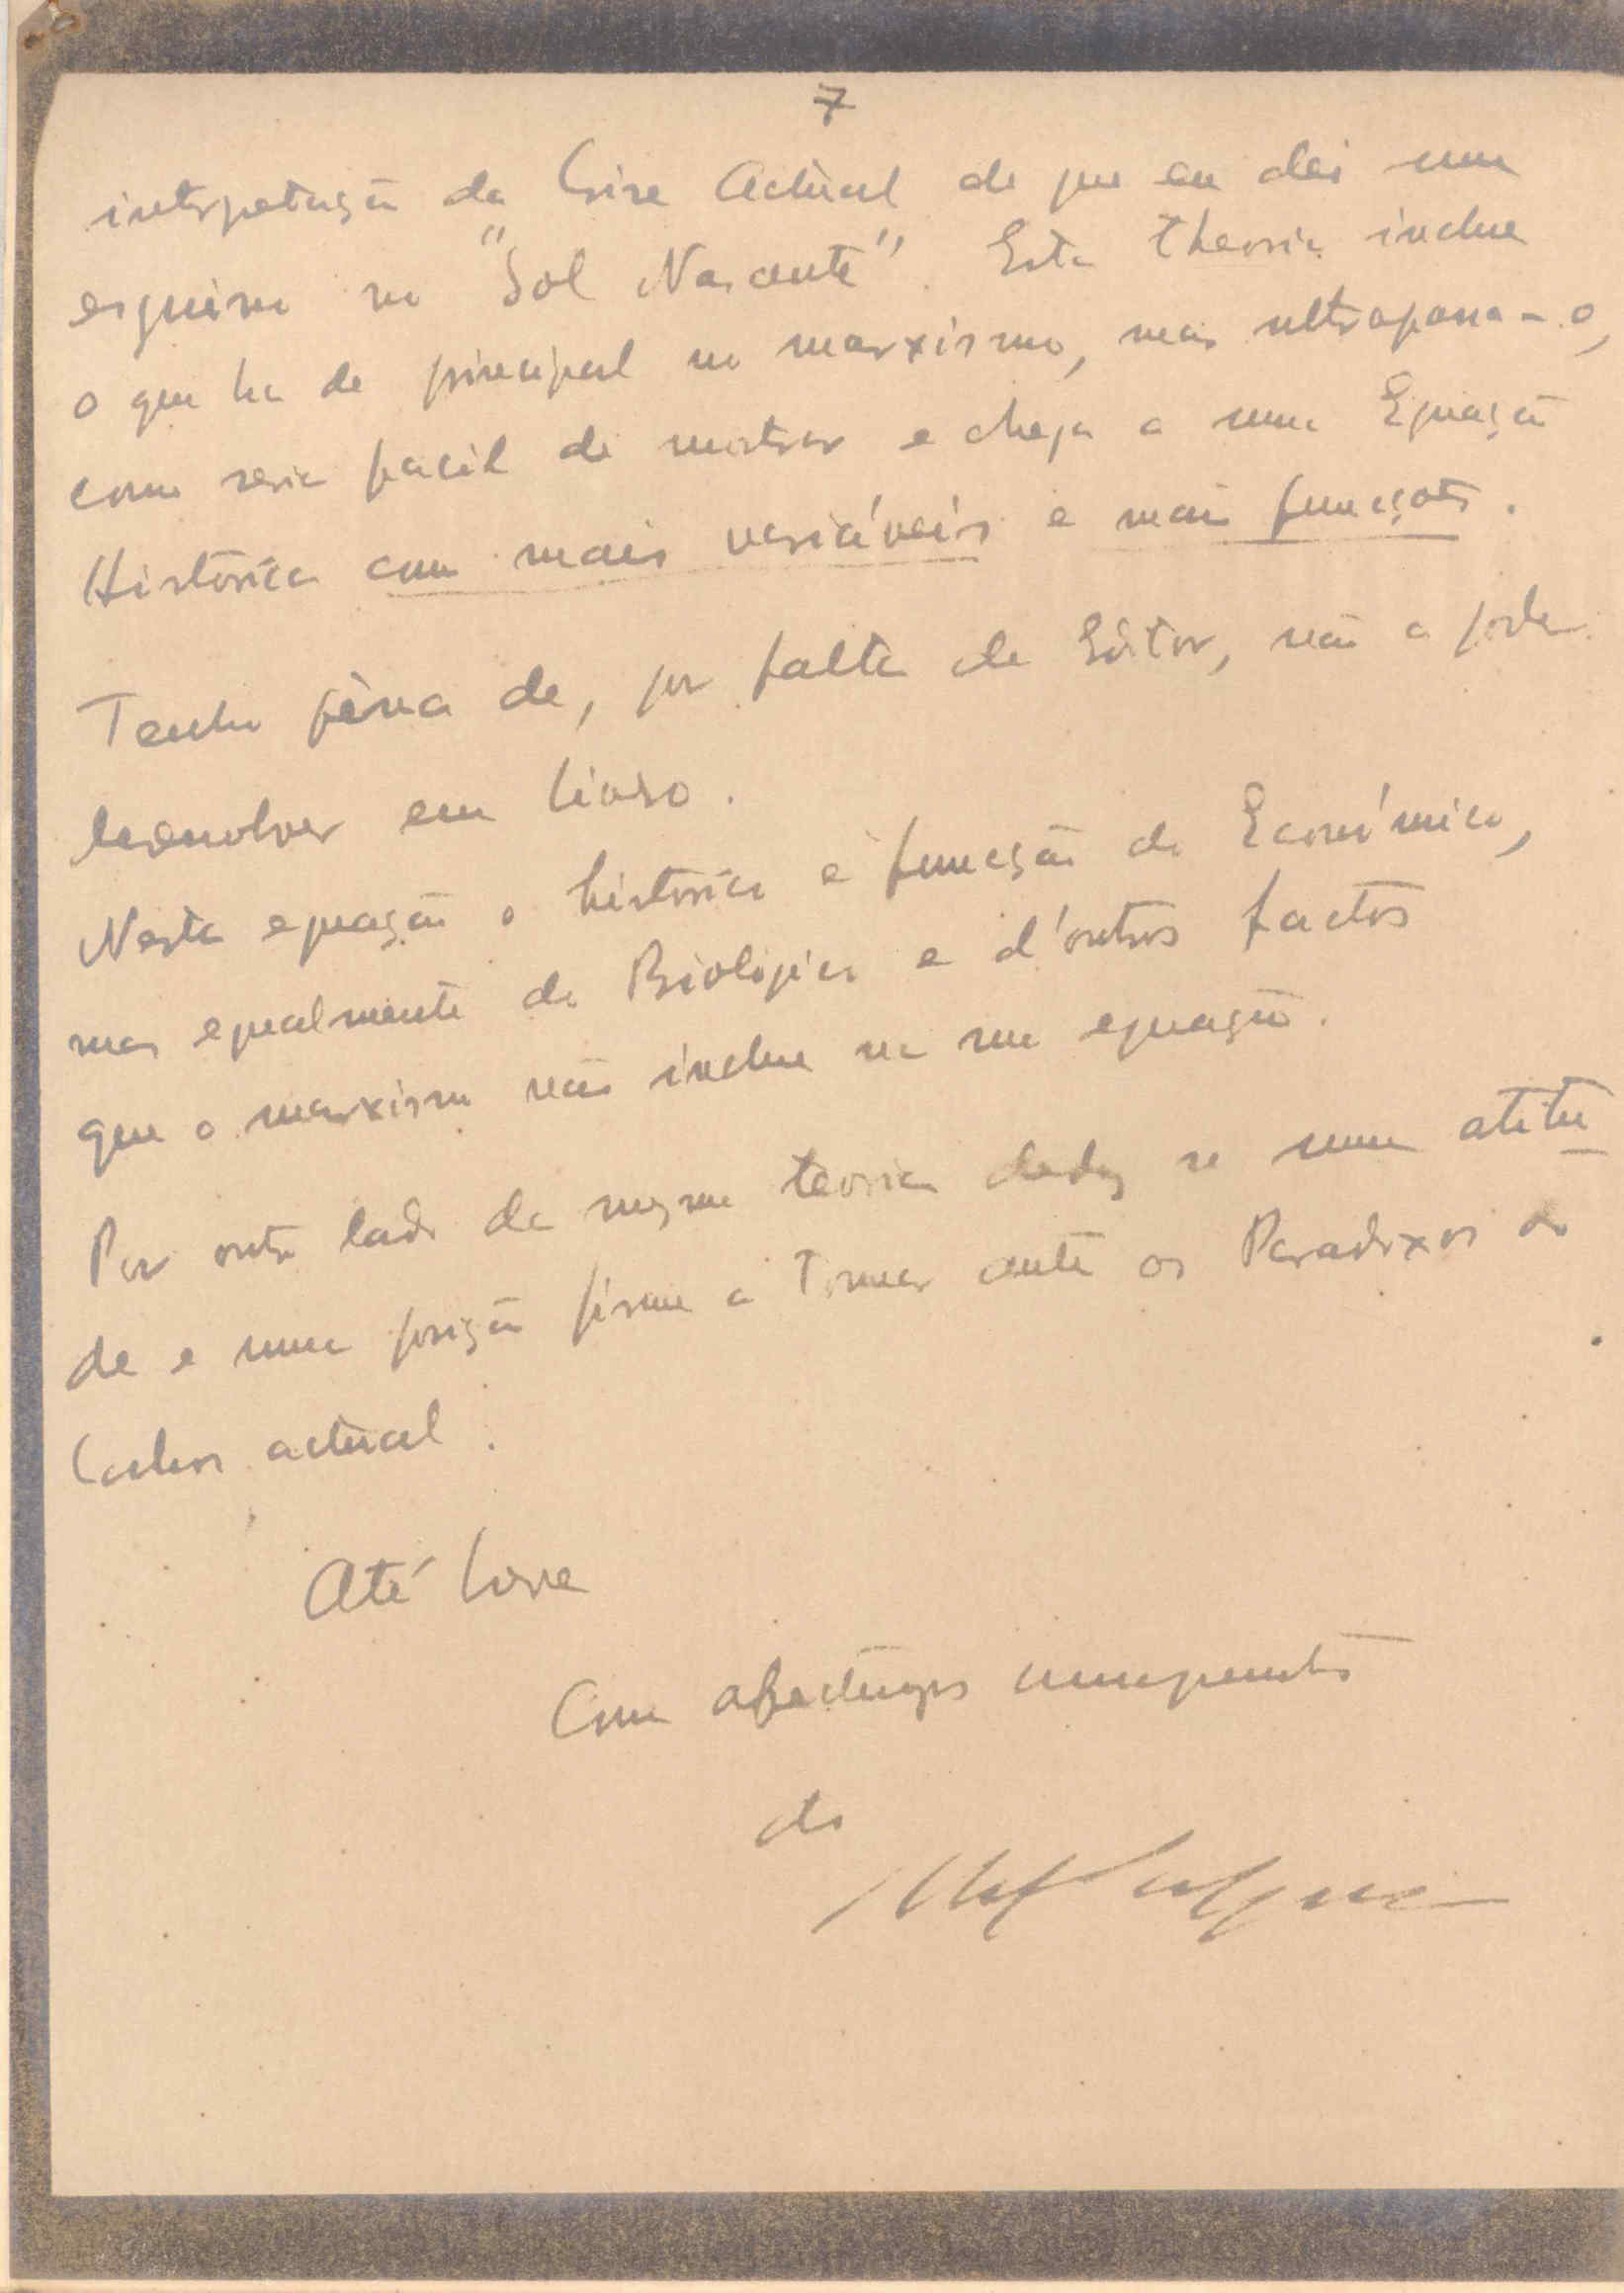 7
interpetação da Crise Actual de que eu dei um
esquiso no "Sol Nascente". Esta theoria inclue
o que ha de principal no marxismo, mas ultrapassa-o,
como seria facil de mostrar e chega a uma Equação
Historica com mais variáveis e mais funcções.
Tenho pèna de, por falta de Editor, não a poder
desenvolver em livro.
Nesta equação o historico é funcção do Económico,
mas egualmente do Biologico e d'outros factos
que o marxismo não inclue na sua equação.
Por outro lado da mesma teoria deduz se uma atitu
de e uma posição firme a Tomar ante os Paradoxos do
actual.
Até
Com afectuosos cumprimentos
do